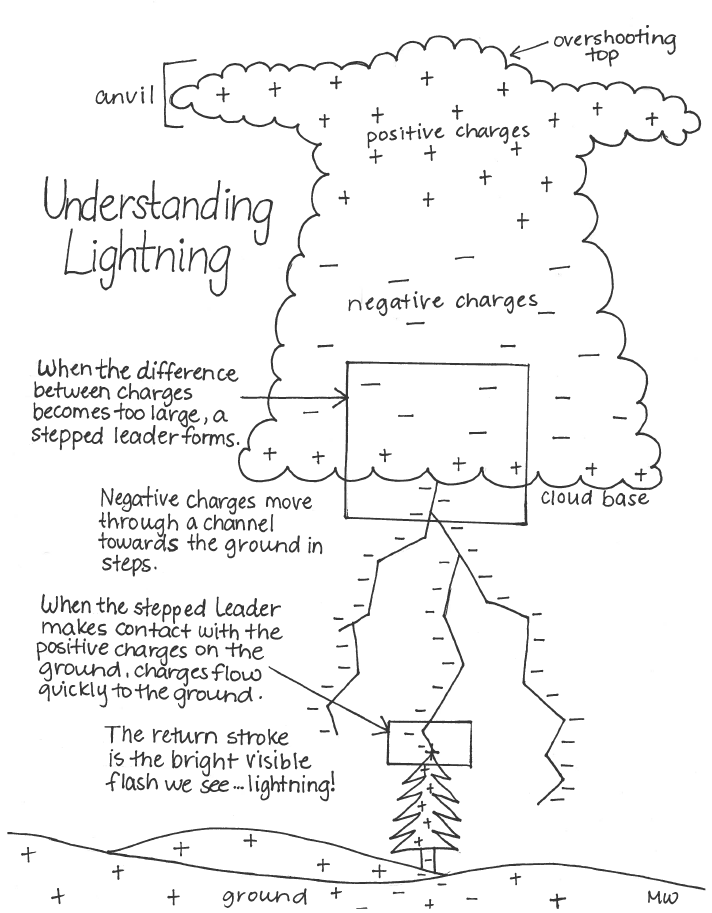 overshooting
top
anvil
positive charges
Understanding
Lightning
negative charges
When the difference
between charges
becomes too large, a
stepped leader forms.
cloud base
Negative charges move
through a channel
towards the ground in
steps.
When the stepped leader
makes contact with the
positive charges on the
ground, charges flow
quickly to the ground.
The return stroke
is the bright visible
flash we see... lightning!
ground
MW